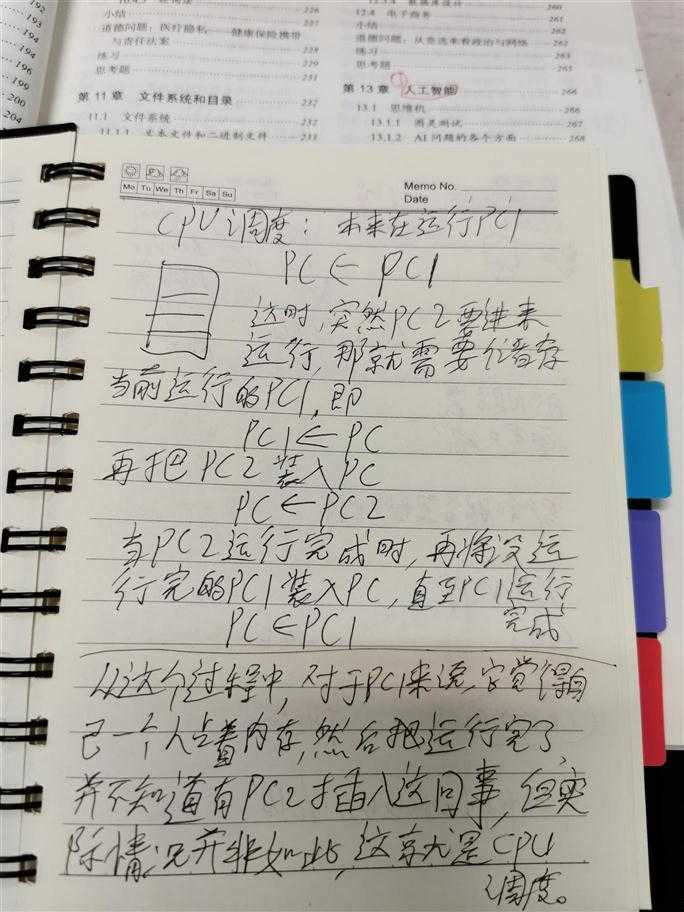 小结 226
道德问题：医疗隐私——健康保险携带
与责任法案 228
练习 229
思考题 231
第 11 章 文件系统和目录 232
11.1 文件系统 232
11.1.1 文本文件和二进制文件 233
12.4 电子商务 261
小结 262
道德问题：从竞选来看政治与网络 262
练习 263
思考题 265
第 13 章 人工智能 266
13.1 思维机 267
13.1.1 图灵测试 267
13.1.2 AI 问题的各个方面 268
194
194
196
199
200
204
Mo Tu We Th Fr Sa Su
Memo No.
Date / /
CPU调度：本来在运行PC1
PC←PC1
这时，突然PC2要进来
运行，那就需要储存
当前运行的PC1，即
PC1←PC
再把PC2装入PC
PC←PC2
当PC2运行完成时，再将没运
行完的PC1装入PC，直至PC1运行
完成
PC←PC1
从这个过程中，对于PC1来说，它觉得自
己一个人占着内存，然后把运行完了，
并不知道有PC2插入这回事，但实
际情况并非如此，这就是CPU
调度。